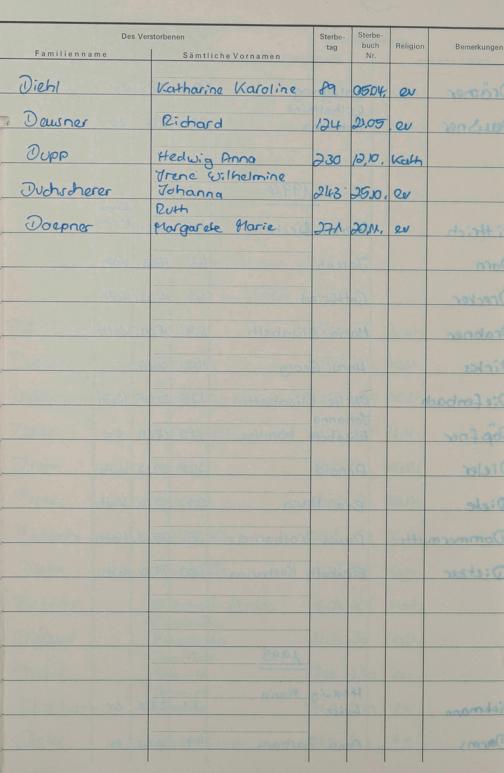 Des Verstorbenen
Familienname Sämtliche Vornamen Sterbe-tag Sterbe-buch Nr. Religion Bemerkungen
Diehl Katharine Karoline 89 05.04. ev
Deusner Richard 124 21.05. ev
Dupp Hedwig Anna 230 12.10. Kath
Irene Wilhelmine
Duchscherer Johanna 243 25.10. ev
Ruth
Doepner Margarete Marie 271 20.11. ev